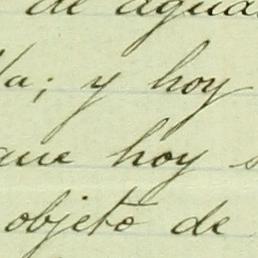 de agua
; y hoy
que hoy
objeto de